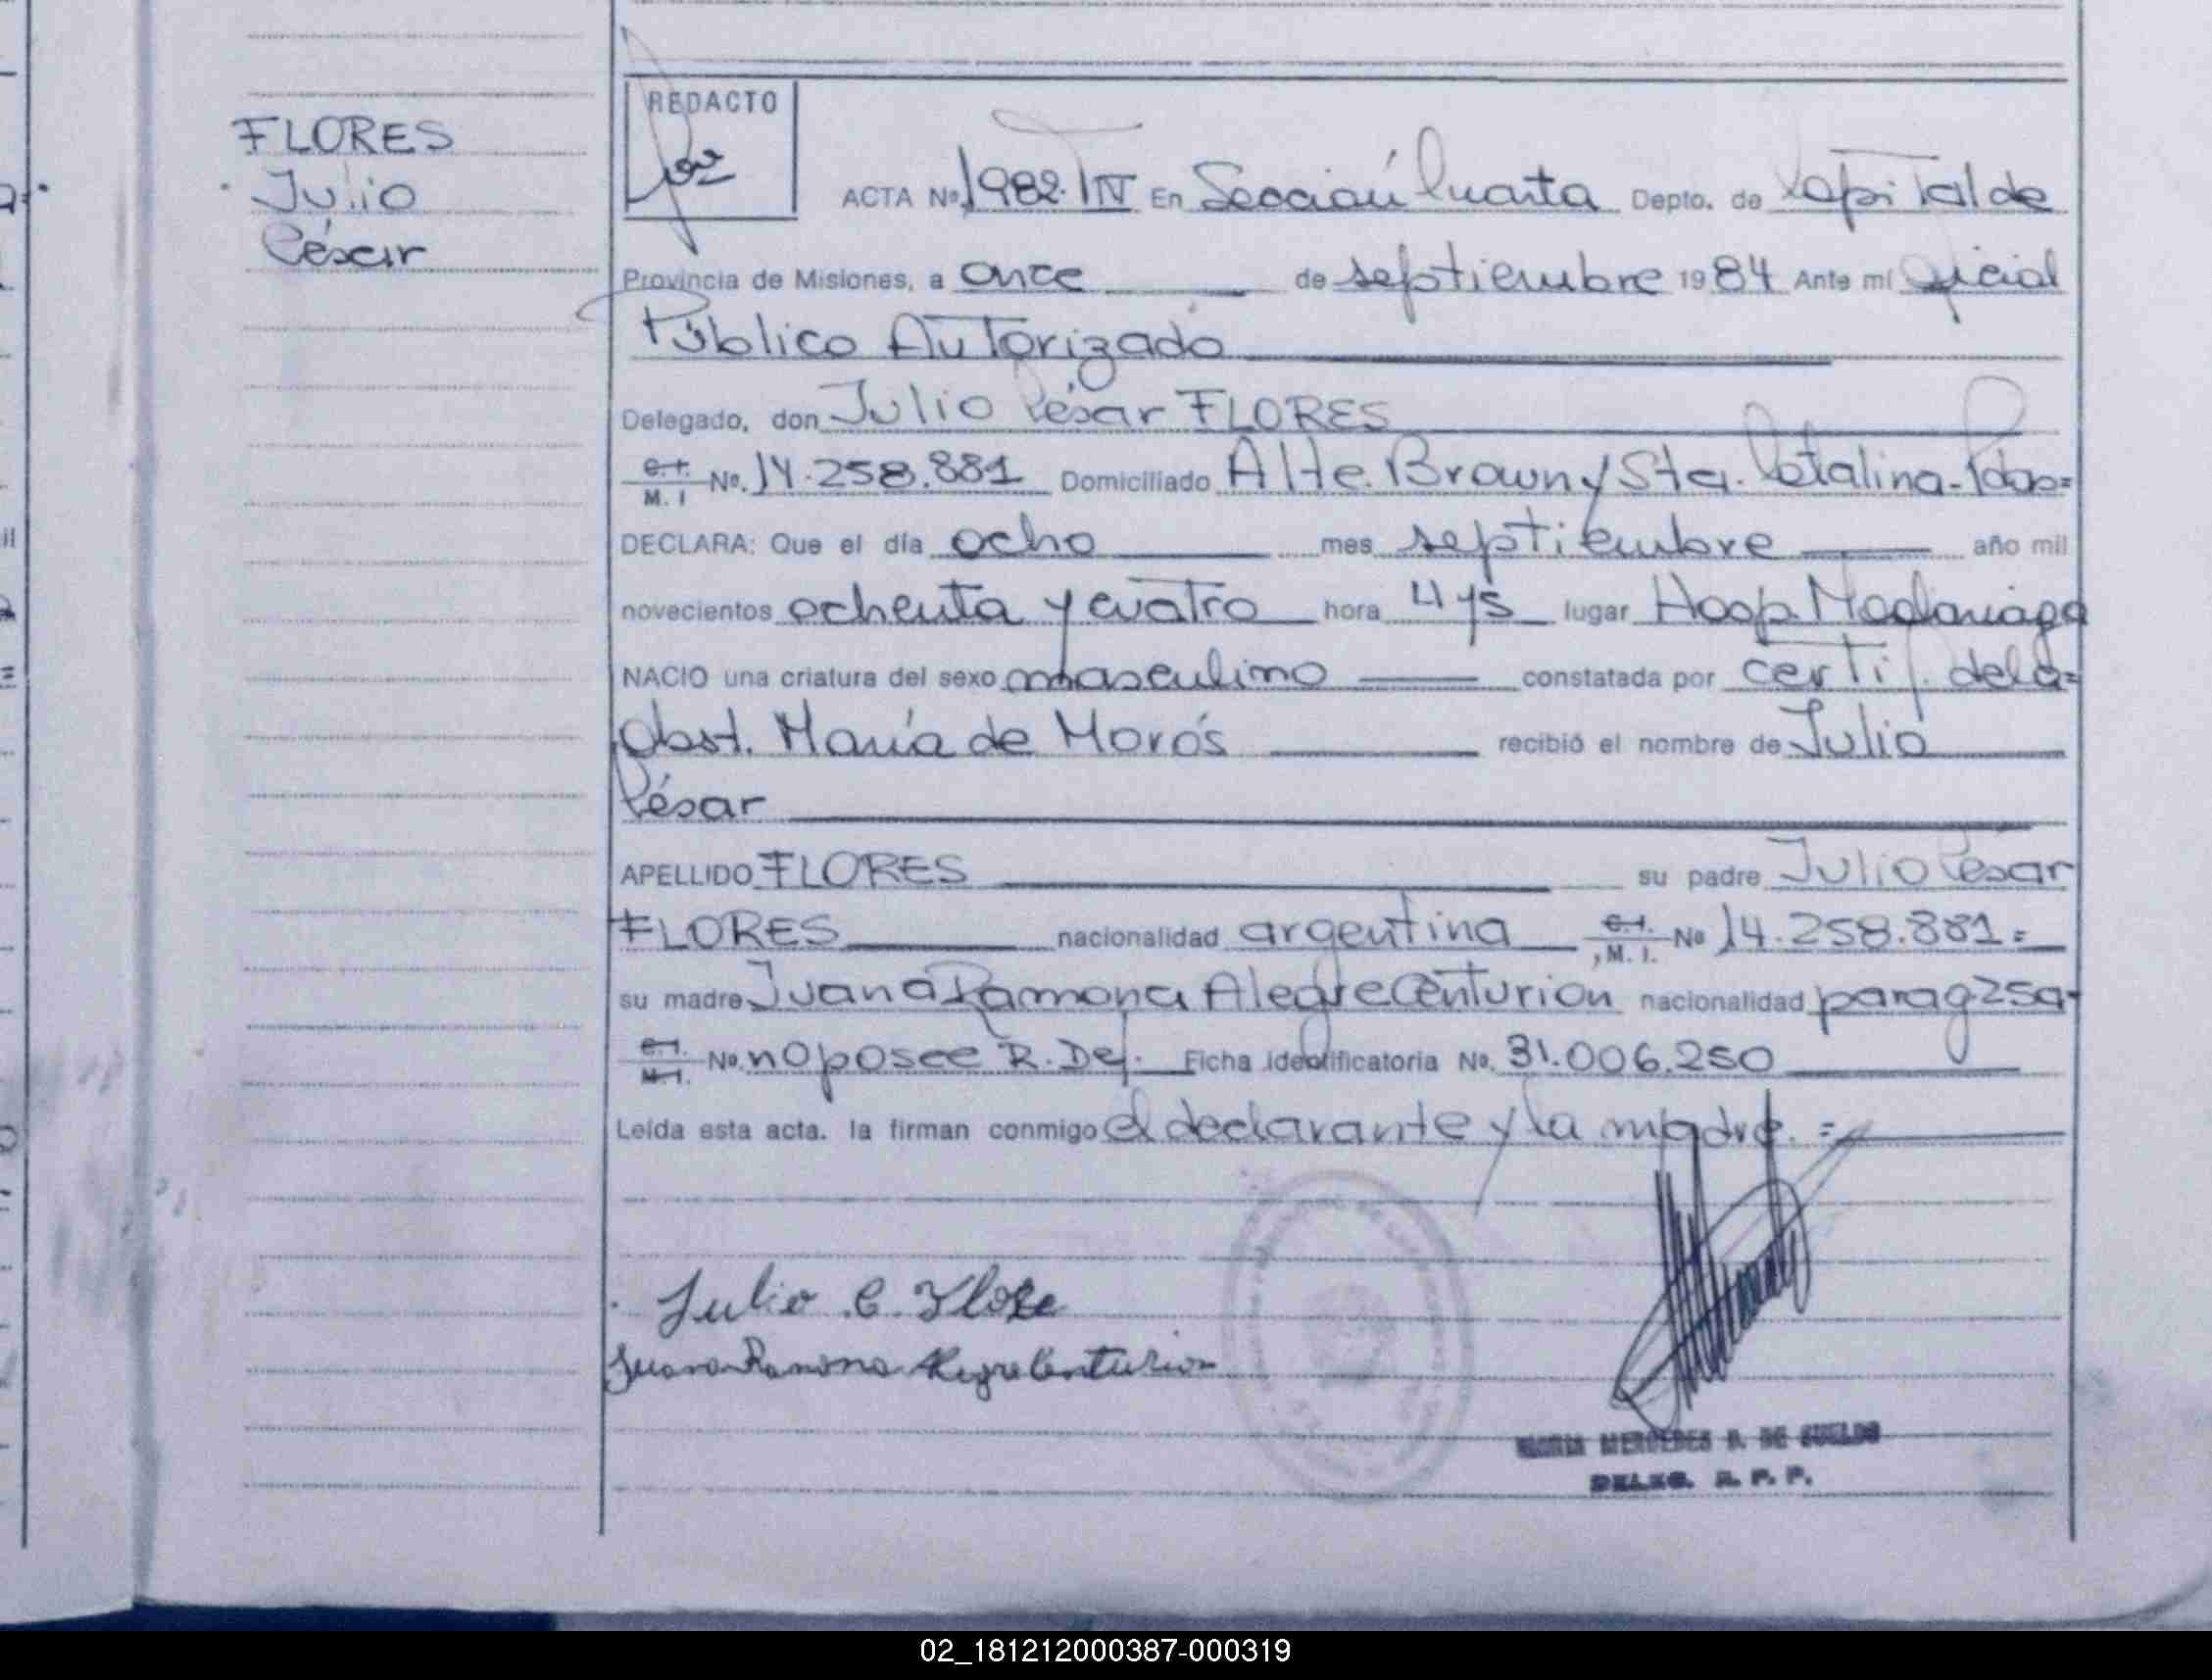 FLORES
Julio
César
REDACTO
ACTA Nº 1982. T IV En Sección Cuarta Depto. de Capital de
Provincia de Misiones, a once de septiembre 1984 Ante mí oficial
Público Autorizado
Delegado, don Julio César FLORES
C.I. M. I Nº. 14.258.881 Domiciliado Alte. Brown y Sta. Catalina - Pdas=
DECLARA: Que el día ocho mes septiembre año mil
novecientos ochenta y cuatro hora 4 y 5 lugar Hosp. Madariaga
NACIO una criatura del sexo masculino constatada por certif. de la=
Obst. María de Morós recibió el nombre de Julio
César
APELLIDO FLORES su padre Julio César
FLORES nacionalidad argentina C.I. M. I. Nº 14.258.881=
su madre Juana Ramona Alegre Centurion nacionalidad parag
C.I. M.I. Nº. no posee R. Def. Ficha identificatoria Nº. 31.006.250
Leída esta acta. la firman conmigo el declarante y la madre. =
Julio C. Flore
Juana Ramona Alegre Centurion
MARIA MERCEDES B. DE SUELDO
DELEG. R. P. P.
02_181212000387-000319